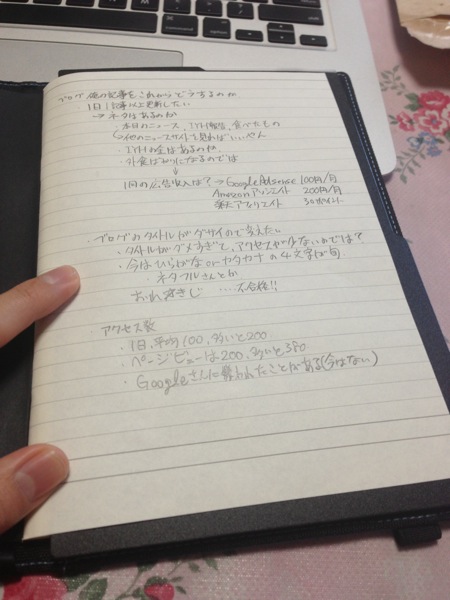 ブログ 俺の記事をこれからどうするのか
・1日1記事以上更新したい
→ネタはあるのか
・本日のニュース、IYH報告、食べたもの
他のニュースサイトを見ればいいやん
・IYHの金はあるのか
・外食ばかりになるのでは
↓
・1円の広告収入は?→Google Adsense 100円/月
Amazonアソシエイト 200円/月
楽天アフィリエイト 30ポイント
・ブログのタイトルがダサイので変えたい
・タイトルがダメすぎて、アクセスが少ないのでは?
・今はひらがなorカタカナの4文字が旬
ネタフルさんとか
おれ きじ ‥‥不合格!!
・アクセス数
・1日、平均100、多いと200
・ページビューは200、多いと350
・Googleさんに 嫌われたことがある(今はない)